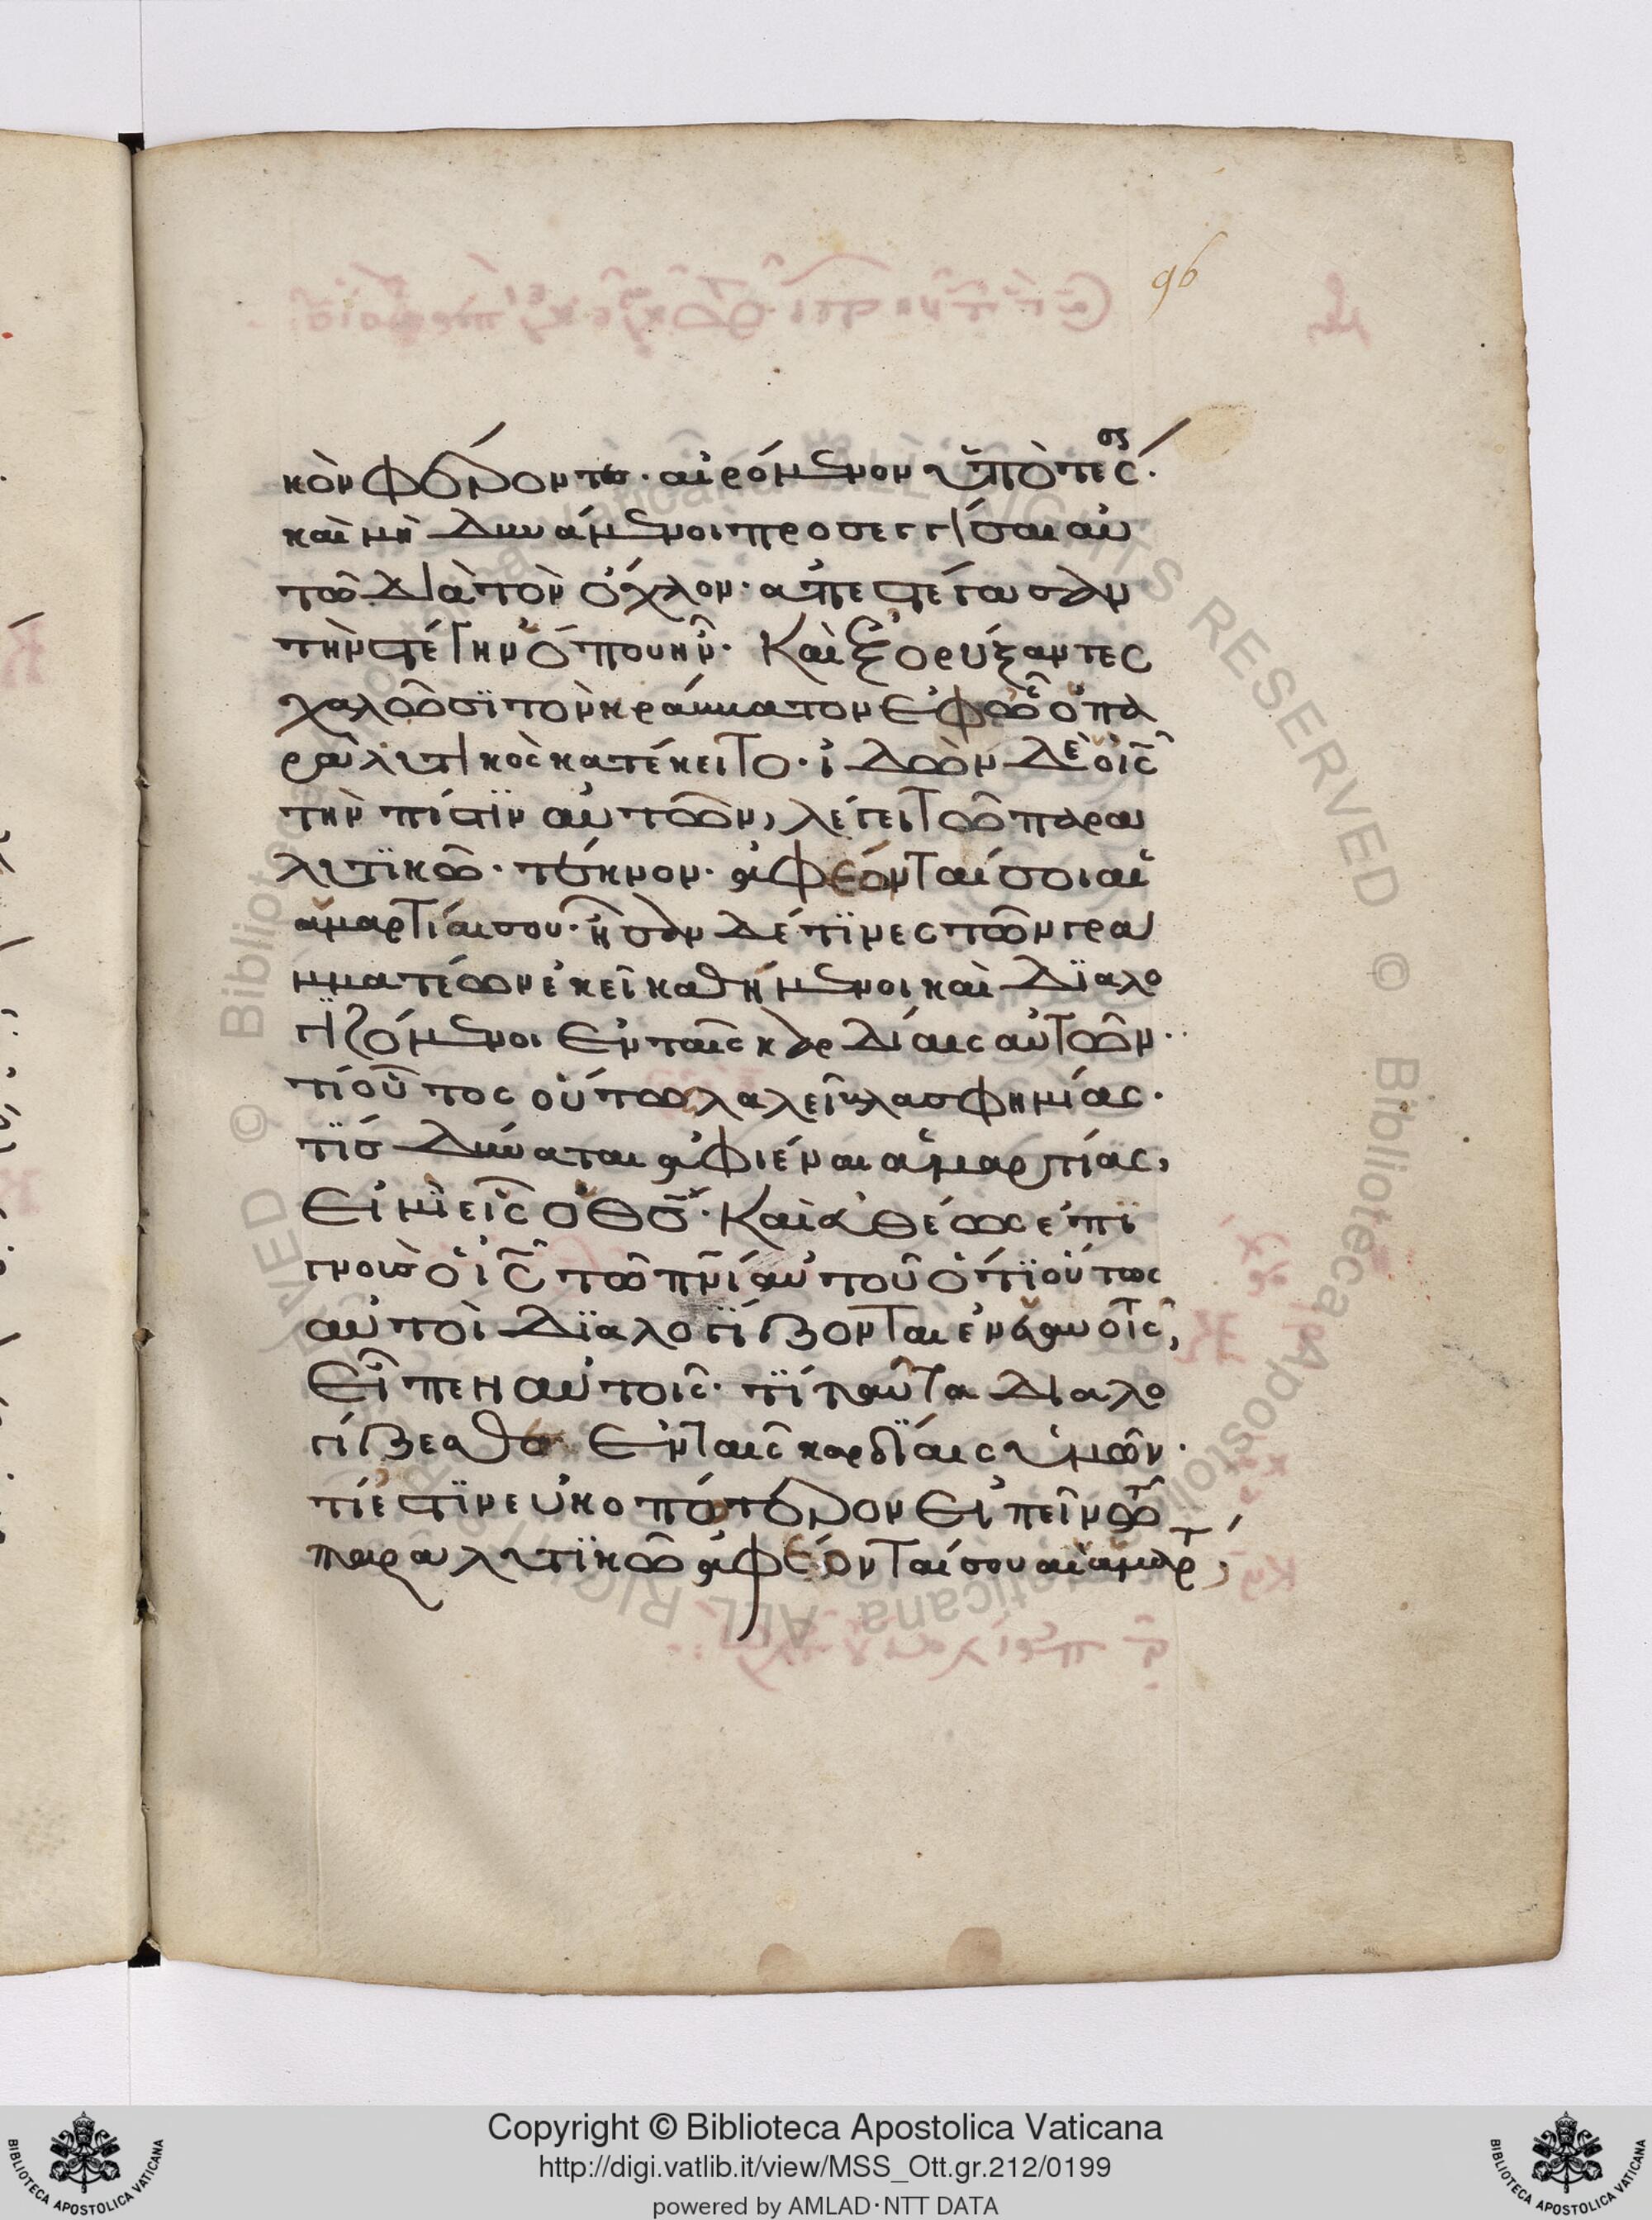 96
κὸν φέροντες. αἰρόμενον ὑπὸ τεσς.
καὶ μὴ δυνάμενοι προσεγγίσαι αυ
τῶ διὰ τὸν ὄχλον. ἀπεστέγασαν
τὴν στέγην ὅπου ἦν. Καὶ ἐξορύξαντες
χαλῶσϊ τὸν κράββατον ἐφ ᾧ ὁ πα
ραλυτικὸς κατέκειτο. ἰδὼν δὲ ὁ ἰς
τὴν πίστϊν αὐτῶν, λέγει τῶ παρα
λυτϊκῶ. τέκνον. ἀφέωνταί σοι αἱ
ἁμαρτίαι σου. ἦσαν δέ τϊνες τῶν γρα
μματέων ἐκεῖ καθήμενοι καὶ δϊαλο
γϊζόμενοι ἐν ταῖς καρδίαις αὐτῶν..
τί οὗτος οὕτω λαλεῖ βλασφημίας.
τϊσ δύναται ἀφιέναι ἁμαρτίας,
εἰ μὶ εἷς ὁ θσ. Καὶ εὐθέως ἐπϊ
γνοὺσ ὁ ἰς τῶ πνί αὐτοῦ ὅτϊ οὕτως
αὐτοὶ δϊαλογϊζονται ἐν ἑαυτοῖς,
εἶπεν αὐτοῖς. τϊ ταῦτα διαλο
γίζεσθε ἐν ταῖς καρδϊαις ὑμῶν.
τί ἐστϊν εὐκοπώτερον εἰπεῖν τῶ
παραλυτϊκῶ ἀφέωνταί σου αἱ ἁμαρτ,
Copyright © Biblioteca Apostolica Vaticana
http://digi.vatlib.it/view/MSS_Ott.gr.212/0199
powered by AMLAD·NTT DATA
BIBLIOTECA APOSTOLICA VATICANA
BIBLIOTECA APOSTOLICA VATICANA